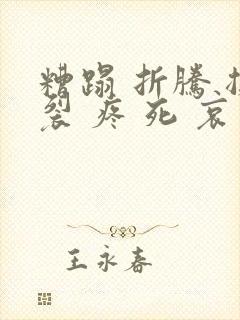 糟蹋 折騰
裂 疼 死 哀
王永春